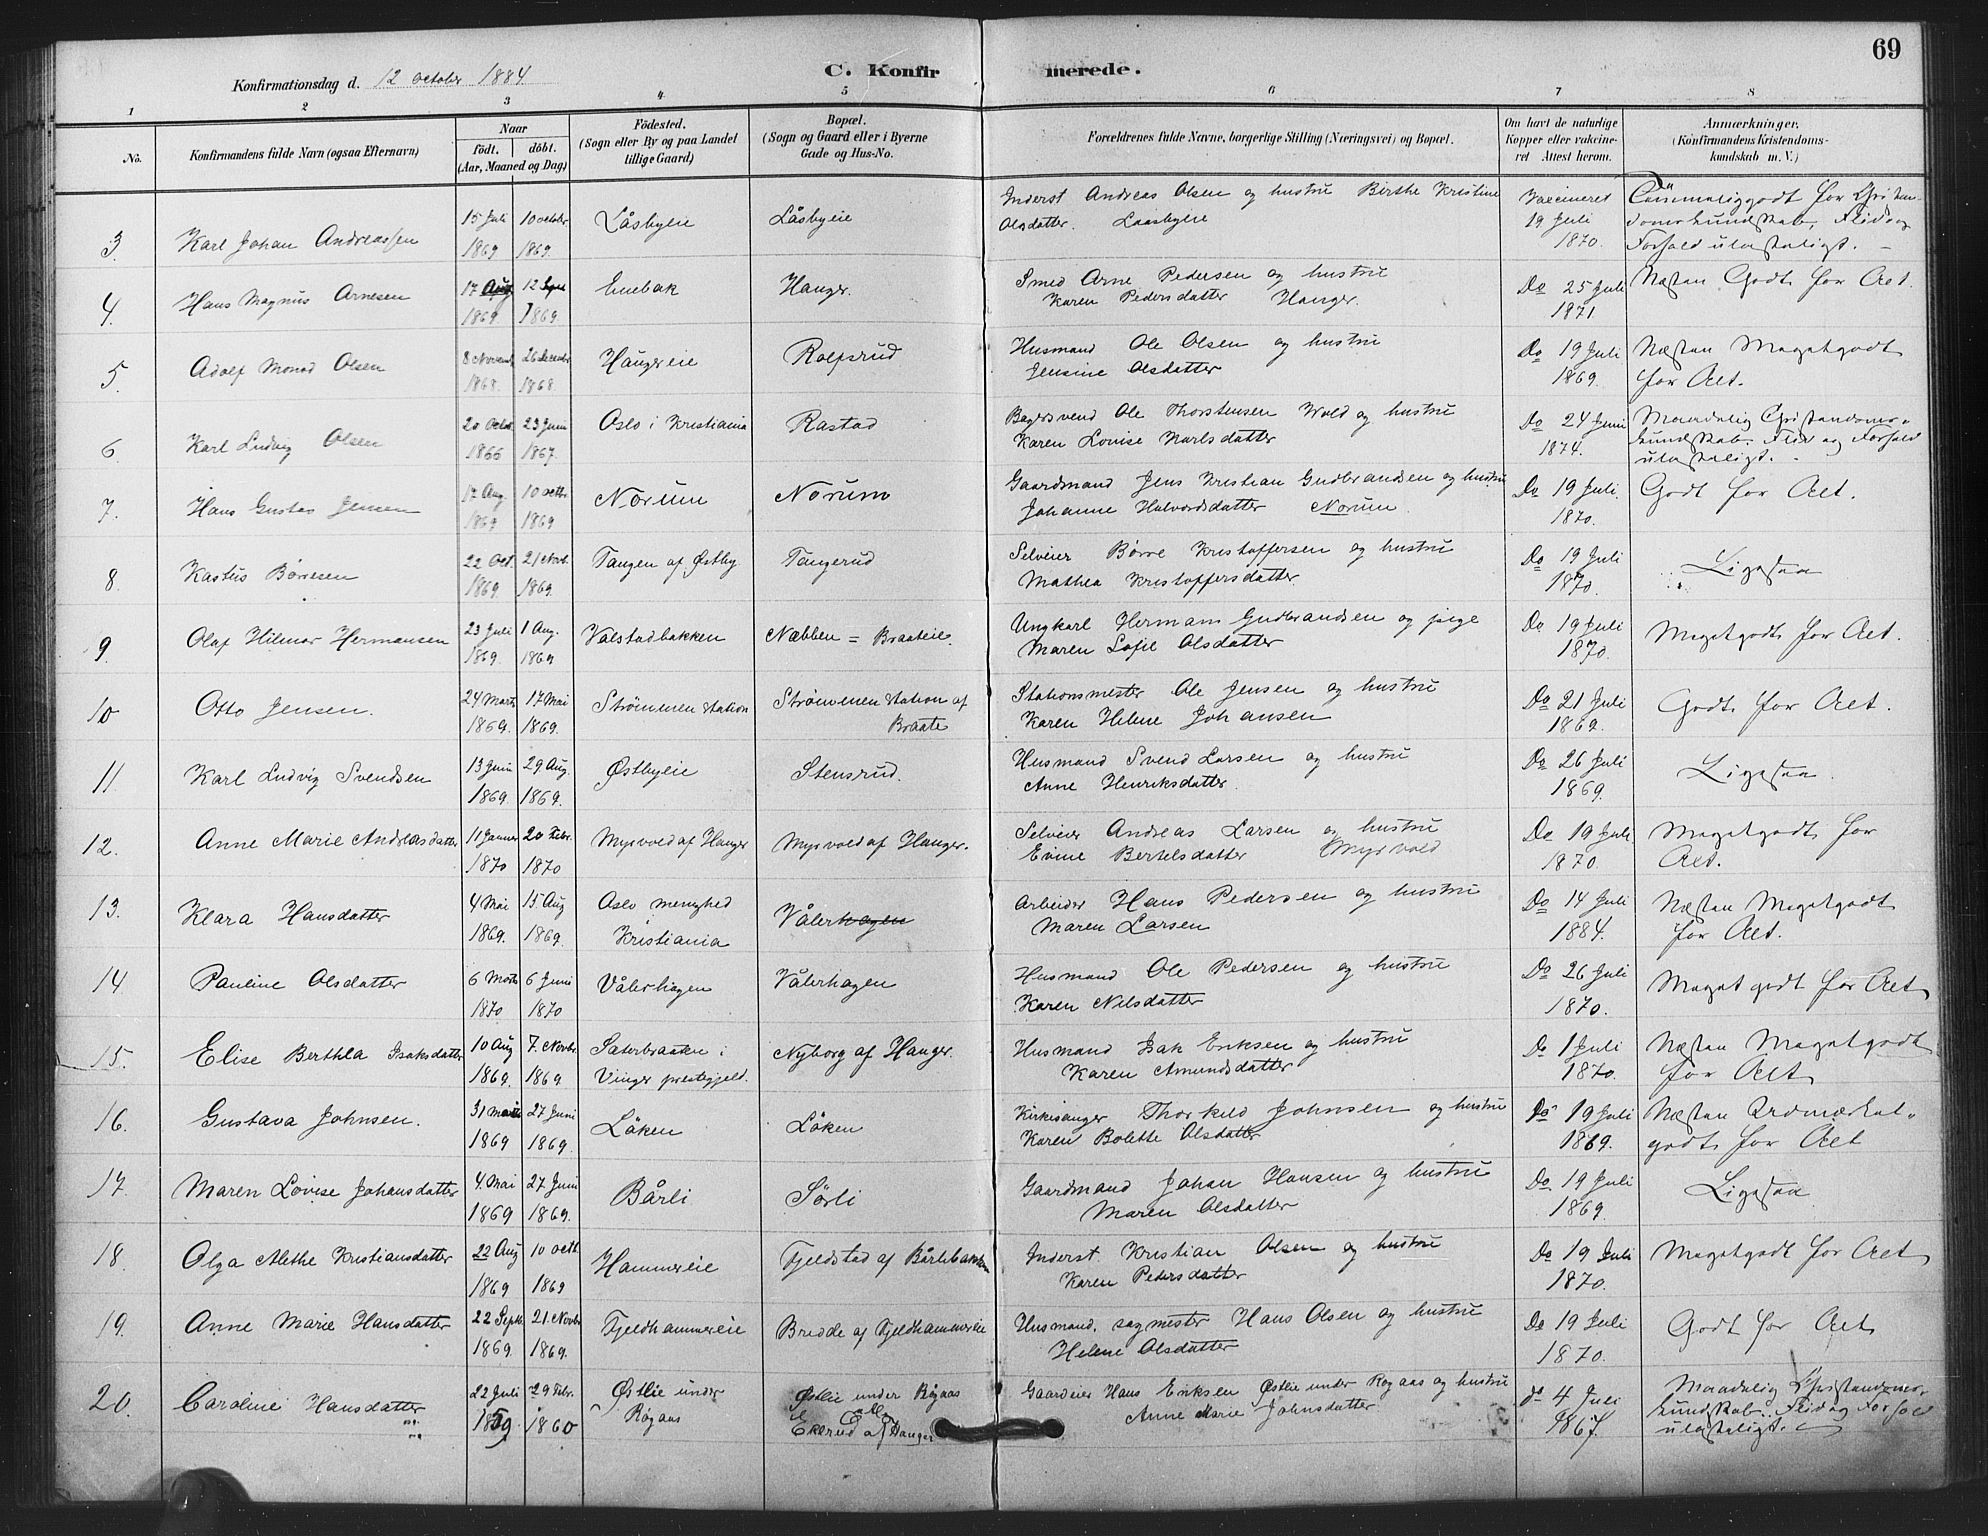 69
Konfirmationsdag d. 12 october 1884
C. Konfirmerede.
1 2 3 4 5 6 7 8
No.
Konfirmandens fulde Navn (ogsaa Efternavn)
Naar
födt. | döbt.
(Aar, Maaned og Dag)
Födested.
(Sogn eller By og paa Landet
tillige Gaard)
Bopæl.
(Sogn og Gaard eller i Byerne
Gade og Hus-No.
Forældrenes fulde Navne, borgerlige Stilling (Næringsvei) og Bopæl.
Om havt de naturlige
Kopper eller vaccine-
ret Attest herom.
Anmærkninger.
(Konfirmandens Kristendoms-
kundskab m. V.)
3. Karl Johan Andreassen
15 Juli 1869
10 octobr. 1869.
Låsbyeie
Låsbyeie
Inderst Andreas Olsen og hustru Birthe Kristine
Olsdatter. Laasbyeie
Vaccineret
19 Juli
1870.
Temmeliggodt for Christen-
domskundskab, Flid og
Forhold ulasteligt.
4. Hans Magnus Arnesen
17 Aug 1869.
12 Sept 1869.
Enebak
Hanger.
Smed Arne Pedersen og hustru
Karen Pedersdatter Hanger.
Do 25 Juli
1871.
Næsten Godt for Alt.
5. Adolf Monod Olsen
8 Novemb. 1868.
26 decembr 1868.
Haugereie
Rolfsrud
Husmand Ole Olsen og hustru
Jensine Olsdatter
Do 19 Juli
1869.
Næsten Megetgodt
for Alt.
6. Karl Ludvig Olsen
20 Octob. 1866
23 Juni 1867.
Oslo i Kristiania
Rastad
Bagersvend Ole Thorstensen Wold og hustru
Karen Lovise Karlsdatter
Do 24 Juni
1874.
Maadelig Christendoms-
kundskab. Flid og Forhold
ulasteligt.
7. Hans Gustav Jensen
17 Aug. 1869
10 octbr. 1869
Norum
Norum
Gaardmand Jens Kristian Gudbrandsen og hustru
Johanne Halvordsdatter Norum.
Do 19 Juli.
1870.
Godt for Alt.
8 Kastus Børresen
22 Oct. 1869.
21 Novb. 1869.
Tangen af Østby
Tangerud
Selveier Børre Kristoffersen og hustru
Mathea Kristoffersdatter.
Do 19 Juli
1870.
Ligesaa
9. Olaf Hilmar Hermansen
23 Juli 1869.
1 Aug. 1869
Valstadbakken
Næbben = Braateie.
Ungkarl Hermans Gudbrandsen og pige
Maren Sofie Olsdatter
Do 19 Juli
1870.
Megetgodt for Alt.
10 Otto Jensen.
24 Marts 1869.
17 Mai 1869.
Strömmen station
Strömmen station af
Braate
Stationsmester Ole Jensen og hustru
Karen Helene Johansen
Do 21 Juli
1869.
Godt for Alt.
11 Karl Ludvig Svendsen
13 Juni 1869.
29 Aug. 1869.
Østbyeie
Stensrud.
Husmand Svend Larsen og hustru
Anne Henriksdatter.
Do 26 Juli
1869.
Ligesaa.
12. Anne Marie Andreasdatter
11 Januar 1870
20 Febr. 1870
Myrvold af Hanger
Myrvold af Hanger.
Selveier Andreas Larsen og hustru
Evine Bertelsdatter Myrvold
Do 19 Juli
1870.
Megetgodt for
Alt.
13. Klara Hansdatter
4 Mai 1869.
15 Aug 1869.
Oslo menighed
Kristiania
Vålerhagen
Arbeider Hans Pedersen og hustru
Maren Larsen
Do 14 Juli
1884.
Næsten Megetgodt
for Alt.
14 Pauline Olsdatter
6 Marts 1870
6 Juni 1870
Vålerhagen
Vålerhagen
Husmand Ole Pedersen og hustru
Karen Nilsdatter
Do 26 Juli
1870.
Meget godt for Alt
15. Elise Berthea Isaksdatter
10 Aug 1869.
7. Novbr. 1869
Saterbraaten i
Vinger prestegjeld.
Nyborg af Hanger.
Husmand Isak Eriksen og hustru
Karen Amundsdatter
Do 1 Juli
1870.
Næsten Megetgodt
for Alt
16. Gustava Johnsen.
31 Marts 1869
27 Juni 1869.
Löken
Löken
Kirkesanger Thorkild Johnsen og hustru
Karen Bolette Olsdatter
Do 19 Juli
1869.
Næsten Udmærket-
godt for Alt
17. Maren Lovise Johansdatter
4. Mai 1869
27 Juni 1869.
Bårli
Sörli
Gaardmand Johan Hansen og hustru
Maren Olsdatter
Do 19 Juli
1869.
Ligesaa
18. Olga Alethe Kristiansdatter
22 Aug 1869
10 octb. 1869
Hammereie
Fjeldstad af Bårlibakken
Inderst. Kristian Olsen og hustru
Karen Pedersdatter
Do 19 Juli
1870.
Megetgodt for Alt
19. Anne Marie Hansdatter
22 Septb. 1869.
21. Novbr 1869.
Fjeldhammereie
Bredde af Fjeldhammereie
Husmand, sagmester Hans Olsen og hustru
Helene Olsdatter
Do 19 Juli
1870.
Godt for Alt
20. Caroline Hansdatter
22 Juli 1859
29 Febr. 1860
Østlie under
Rögaas
Østlie under Rögaas
Ekerud af Hanger
Gaardeier Hans Eriksen Østlie under Rögaas og hustru
Anne Marie Johnsdatter
do 4 Juli
1867.
Maadelig Christendoms-
kundskab. Flid og Forhold
ulasteligt.